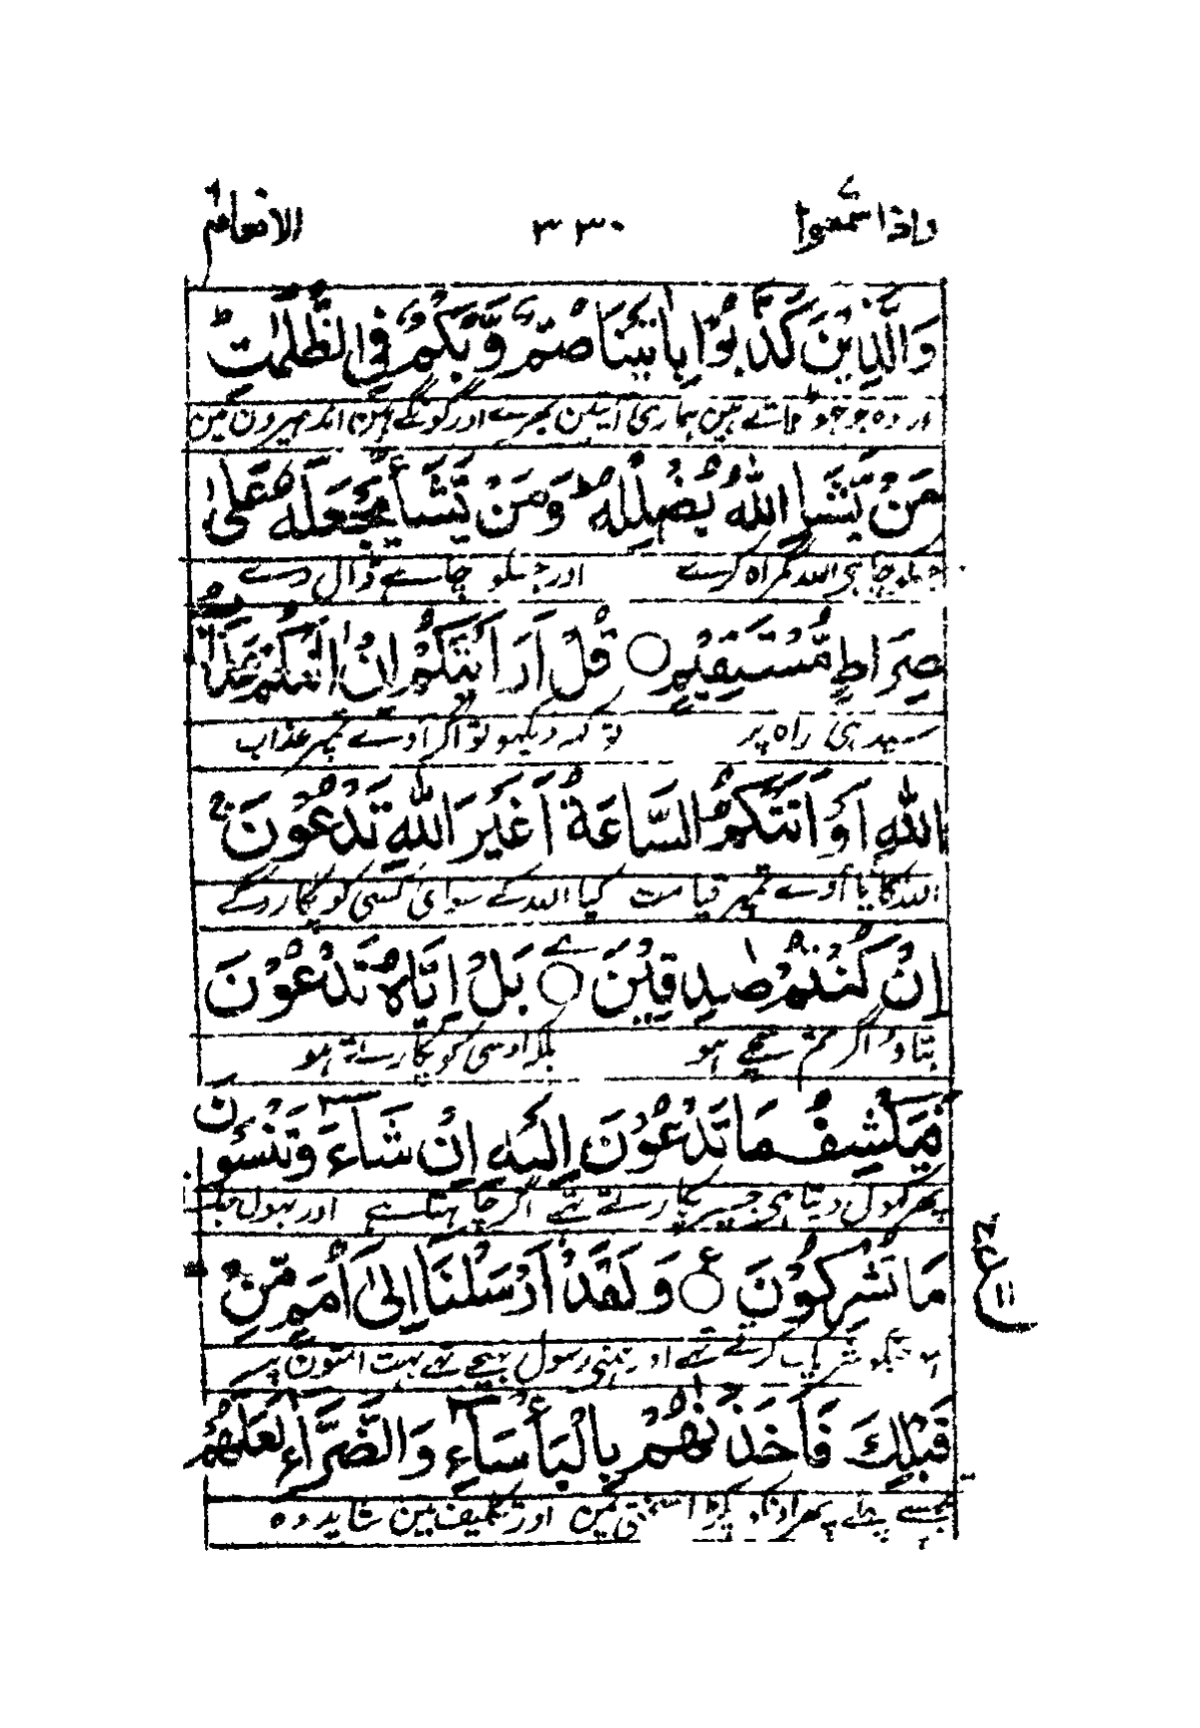 واذا سمعوا ٧ ٣٣٠ الانعام ٦
وَالَّذِيْنَ كَذَّبُوْا بِاٰيٰتِنَا صُمٌّ وَّبُكْمٌ فِي الظُّلُمٰتِ ط
اور وہ جو جھوٹلاتے ہین ہماری آیتین بہرے اور گونگے ہین اندہیرون مین
مَنْ يَّشَاِ اللّٰهُ يُضْلِلْهُ ط وَمَنْ يَّشَأْ يَجْعَلْهُ عَلٰى
جسکو چاہی اللہ گمراہ کرے اور جسکو چاہے ڈال دے
صِرَاطٍ مُّسْتَقِيْمٍ ○ قُلْ اَرَاَيْتَكُمْ اِنْ اَتٰىكُمْ عَذَابُ
سیدہی راہ پر تو کہہ دیکہو تو اگر آوے تمپر عذاب
اللّٰهِ اَوْ اَتَتْكُمُ السَّاعَةُ اَغَيْرَ اللّٰهِ تَدْعُوْنَ ج
اللہ کا یا آوے تمپر قیامت کیا اللہ کے سوای کسی کو پکارو گے
اِنْ كُنْتُمْ صٰدِقِيْنَ ○ بَلْ اِيَّاهُ تَدْعُوْنَ
بتاؤ اگر تم سچے ہو بلکہ اوسی کو پکارتے ہو
فَيَكْشِفُ مَا تَدْعُوْنَ اِلَيْهِ اِنْ شَآءَ وَتَنْسَوْنَ
پھر کھول دیتا ہی جسپر پکارتے تھے اگر چاہتا ہے اور بہول جاتے
مَا تُشْرِكُوْنَ ○ ع وَلَقَدْ اَرْسَلْنَا اِلٰى اُمَمٍ مِّنْ
ع ١١
جنکو شریک کرتے تھے اور ہمنی رسول بہیجے تہے بہت امتون پر
قَبْلِكَ فَاَخَذْنٰهُمْ بِالْبَاْسَآءِ وَالضَّرَّآءِ لَعَلَّهُمْ
تجسے پہلے پھر اونکو پکڑا سختی مین اور تکلیف مین شاید وہ